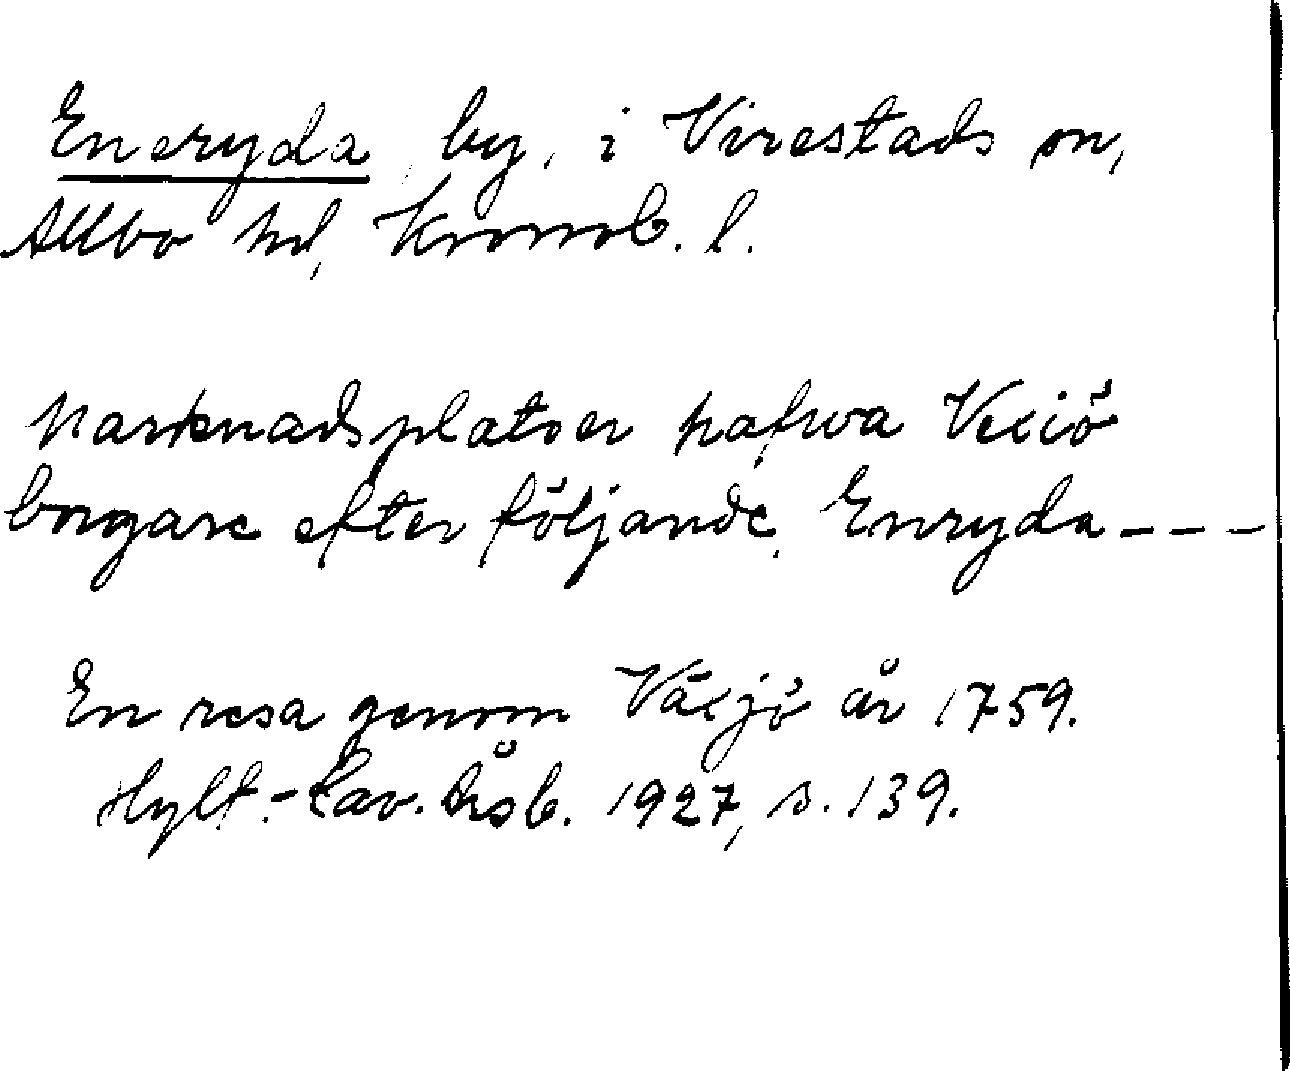 Eneryda, by, i Virestads sn,
Allbo hd, Kronob. l.
Marknadsplatser hafwa Vexiö
borgare efter följande, Enryda - - -
En resa genom Växjö år 1759.
Hylt.-Cav. Årsb. 1927, s. 139.